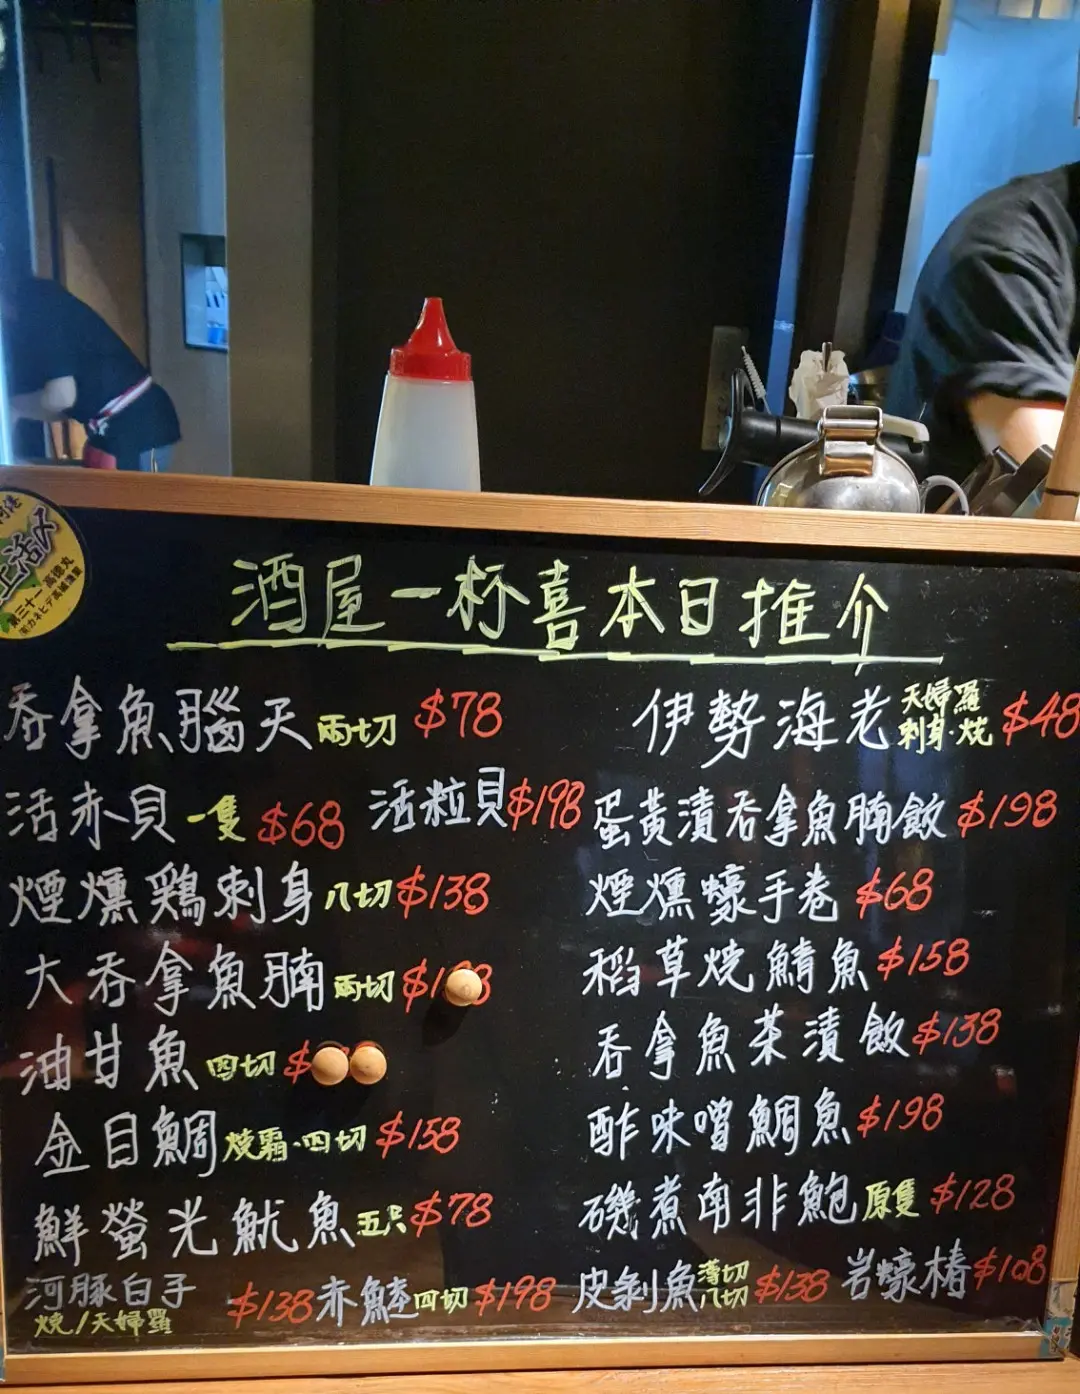 酒屋一杯喜本日推介
吞拿魚腦天 兩切 $78
活赤貝 一隻 $68 活粒貝 $198
煙燻鶏刺身 八切 $138
大吞拿魚腩 兩切
油甘魚 四切 $
金目鯛 燒霜·四切 $158
鮮螢光魷魚 五只 $78
河豚白子 燒/天婦羅 $138 赤鯥 四切 $198
伊勢海老 天婦羅 刺身·燒 $48
蛋黃漬吞拿魚腩飯 $198
煙燻蠔手卷 $68
稻草燒鯖魚 $158
吞拿魚茶漬飯 $138
酢味噌鯛魚 $198
磯煮南非鮑 原隻 $128
皮剝魚 薄切 八切 $138 岩蠔樁 $108
活〆
第三十一高德丸